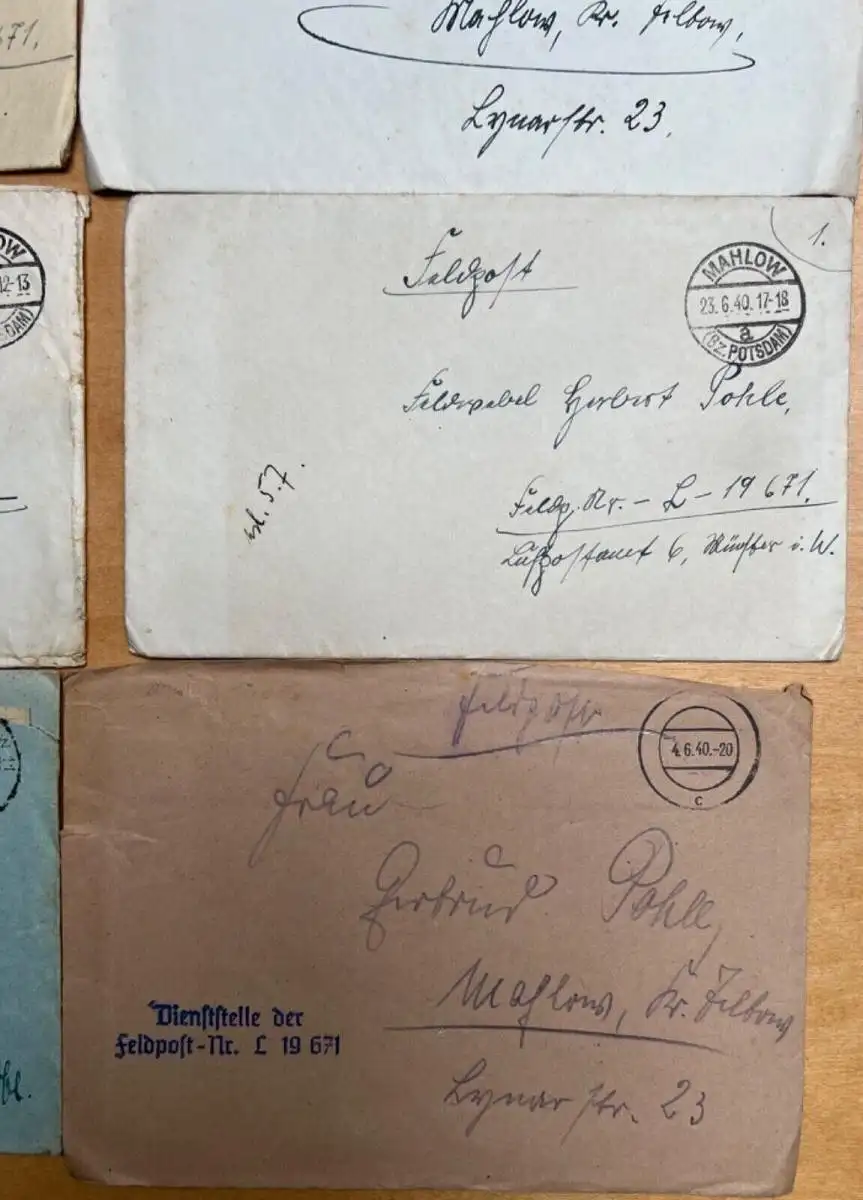 671.
Mahlow, Kr. Teltow,
Lynarstr. 23.
12-13
Feldpost
1.
MAHLOW
23.6.40.17-18
a
(BZ. POTSDAM)
Feldwebel Herbert Pohle,
Feldp. Nr. - L - 19 671.
Luftpostamt 6, Münster i. W.
erl. 5.7.
Feldpost
4.6.40.-20
c
Frau
Gertrud Pohle,
Mahlow, Kr. Teltow
Lynarstr. 23
Dienststelle der
Feldpost-Nr. L 19 671